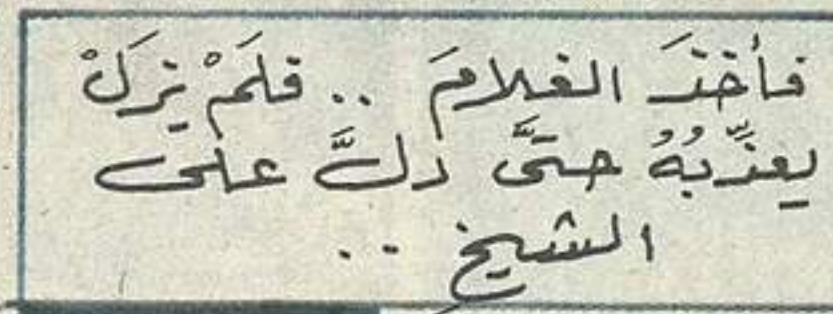 فأخذَ الغلامَ .. فلَمْ يزَلْ
يعذِّبُهُ حتَّى دلَّ على
الشيخِ ..